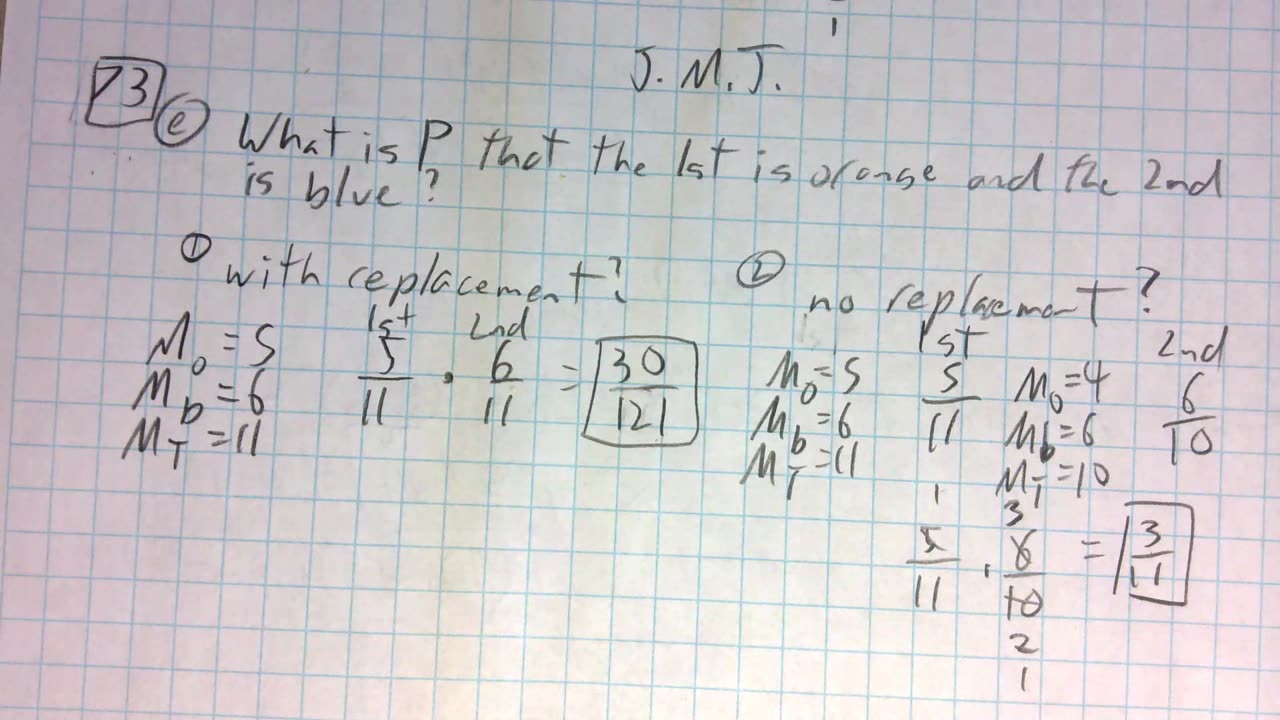 1
J.M.J.
73 e What is P that the 1st is orange and the 2nd
is blue?
① with replacement?
1st 2nd
M_o = 5
M_b = 6
M_T = 11
5/11 · 6/11 = 30/121
② no replacement?
1st 2nd
M_o = 5 5/11 M_o = 4 6/10
M_b = 6 M_b = 6
M_T = 11 M_T = 10
1 3
5/11 · 6/10 = 3/11
2
1